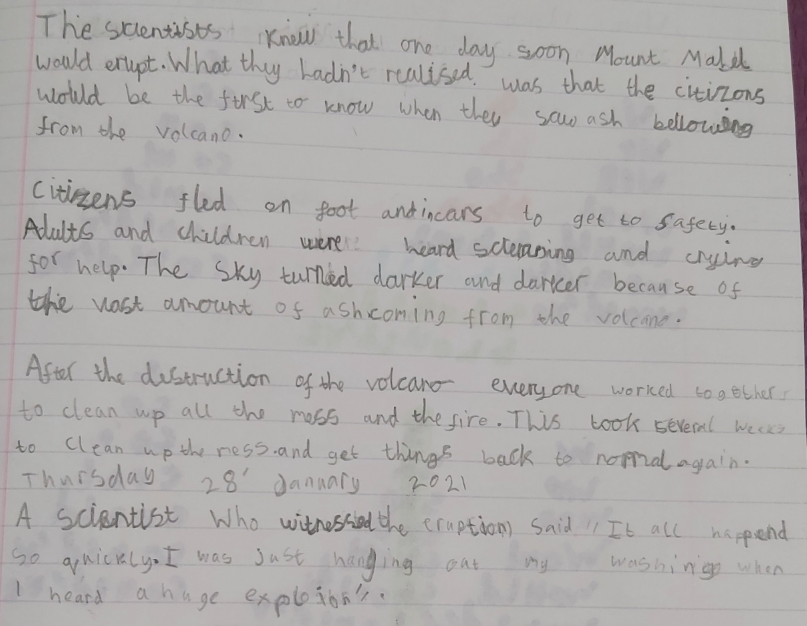 The scientists knew that one day soon Mount Mabel
would erupt. What they hadn't realised was that the citizons
would be the first to know when they saw ash bellowing
from the volcano.
Citizens fled on foot and in cars to get to safety.
Adults and children were heard screaming and crying
for help. The Sky turned darker and darker because of
the vast amount of ash coming from the volcano.
After the distruction of the volcano everyone worked together
to clean up all the mess and the fire. This took several weeks
to clean up the mess. and get things back to normal again.
Thursday 28 January 2021
A scientist who witnessed the eruption said "It all happend
so quickly. I was just hanging out my washing when
I heard a huge exploion".